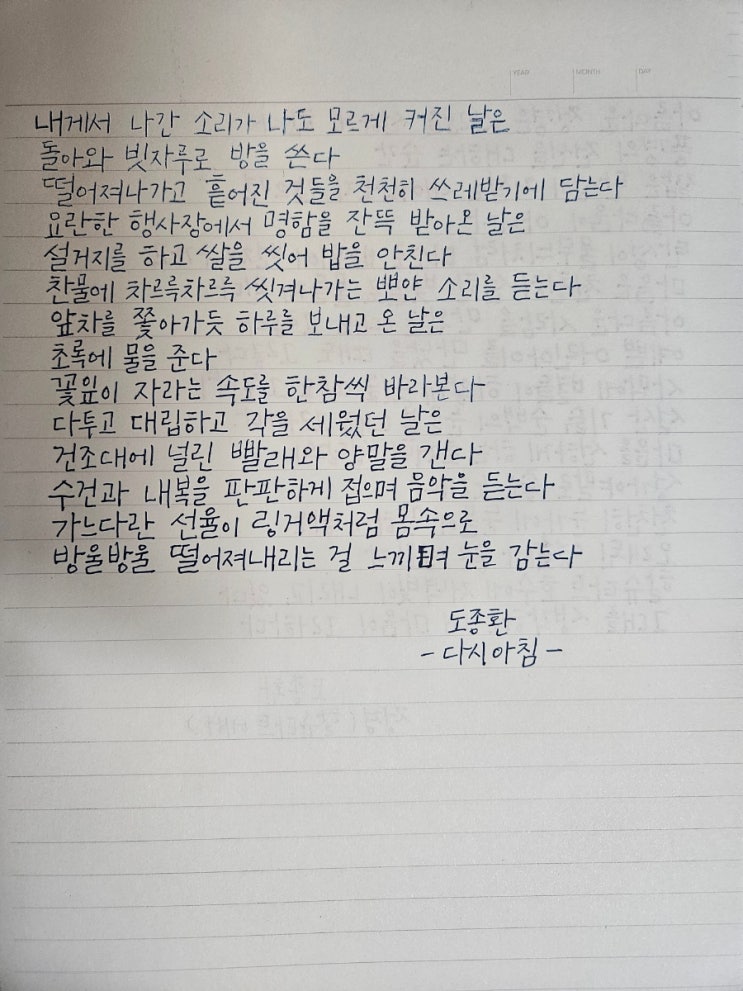 YEAR MONTH DAY
내게서 나간 소리가 나도 모르게 커진 날은
돌아와 빗자루로 방을 쓴다
떨어져나가고 흩어진 것들을 천천히 쓰레받기에 담는다
요란한 행사장에서 명함을 잔뜩 받아온 날은
설거지를 하고 쌀을 씻어 밥을 안친다
찬물에 차르륵차르륵 씻겨나가는 뽀얀 소리를 듣는다
앞차를 쫓아가듯 하루를 보내고 온 날은
초록에 물을 준다
꽃잎이 자라는 속도를 한참씩 바라본다
다투고 대립하고 각을 세웠던 날은
건조대에 널린 빨래와 양말을 갠다
수건과 내복을 판판하게 접으며 음악을 듣는다
가느다란 선율이 링거액처럼 몸속으로
방울방울 떨어져내리는 걸 느끼며 눈을 감는다
도종환
- 다시아침 -